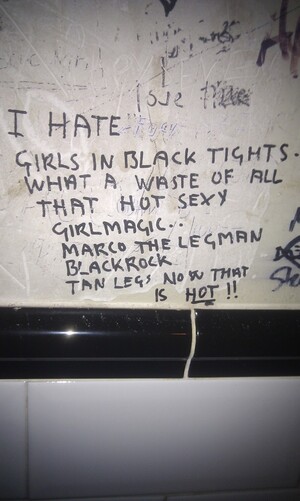 I HATE
GIRLS IN BLACK TIGHTS.
WHAT A WASTE OF ALL
THAT HOT SEXY
GIRLMAGIC..
MARCO THE LEGMAN
BLACKROCK
TAN LEGS NOW THAT
IS HOT !!